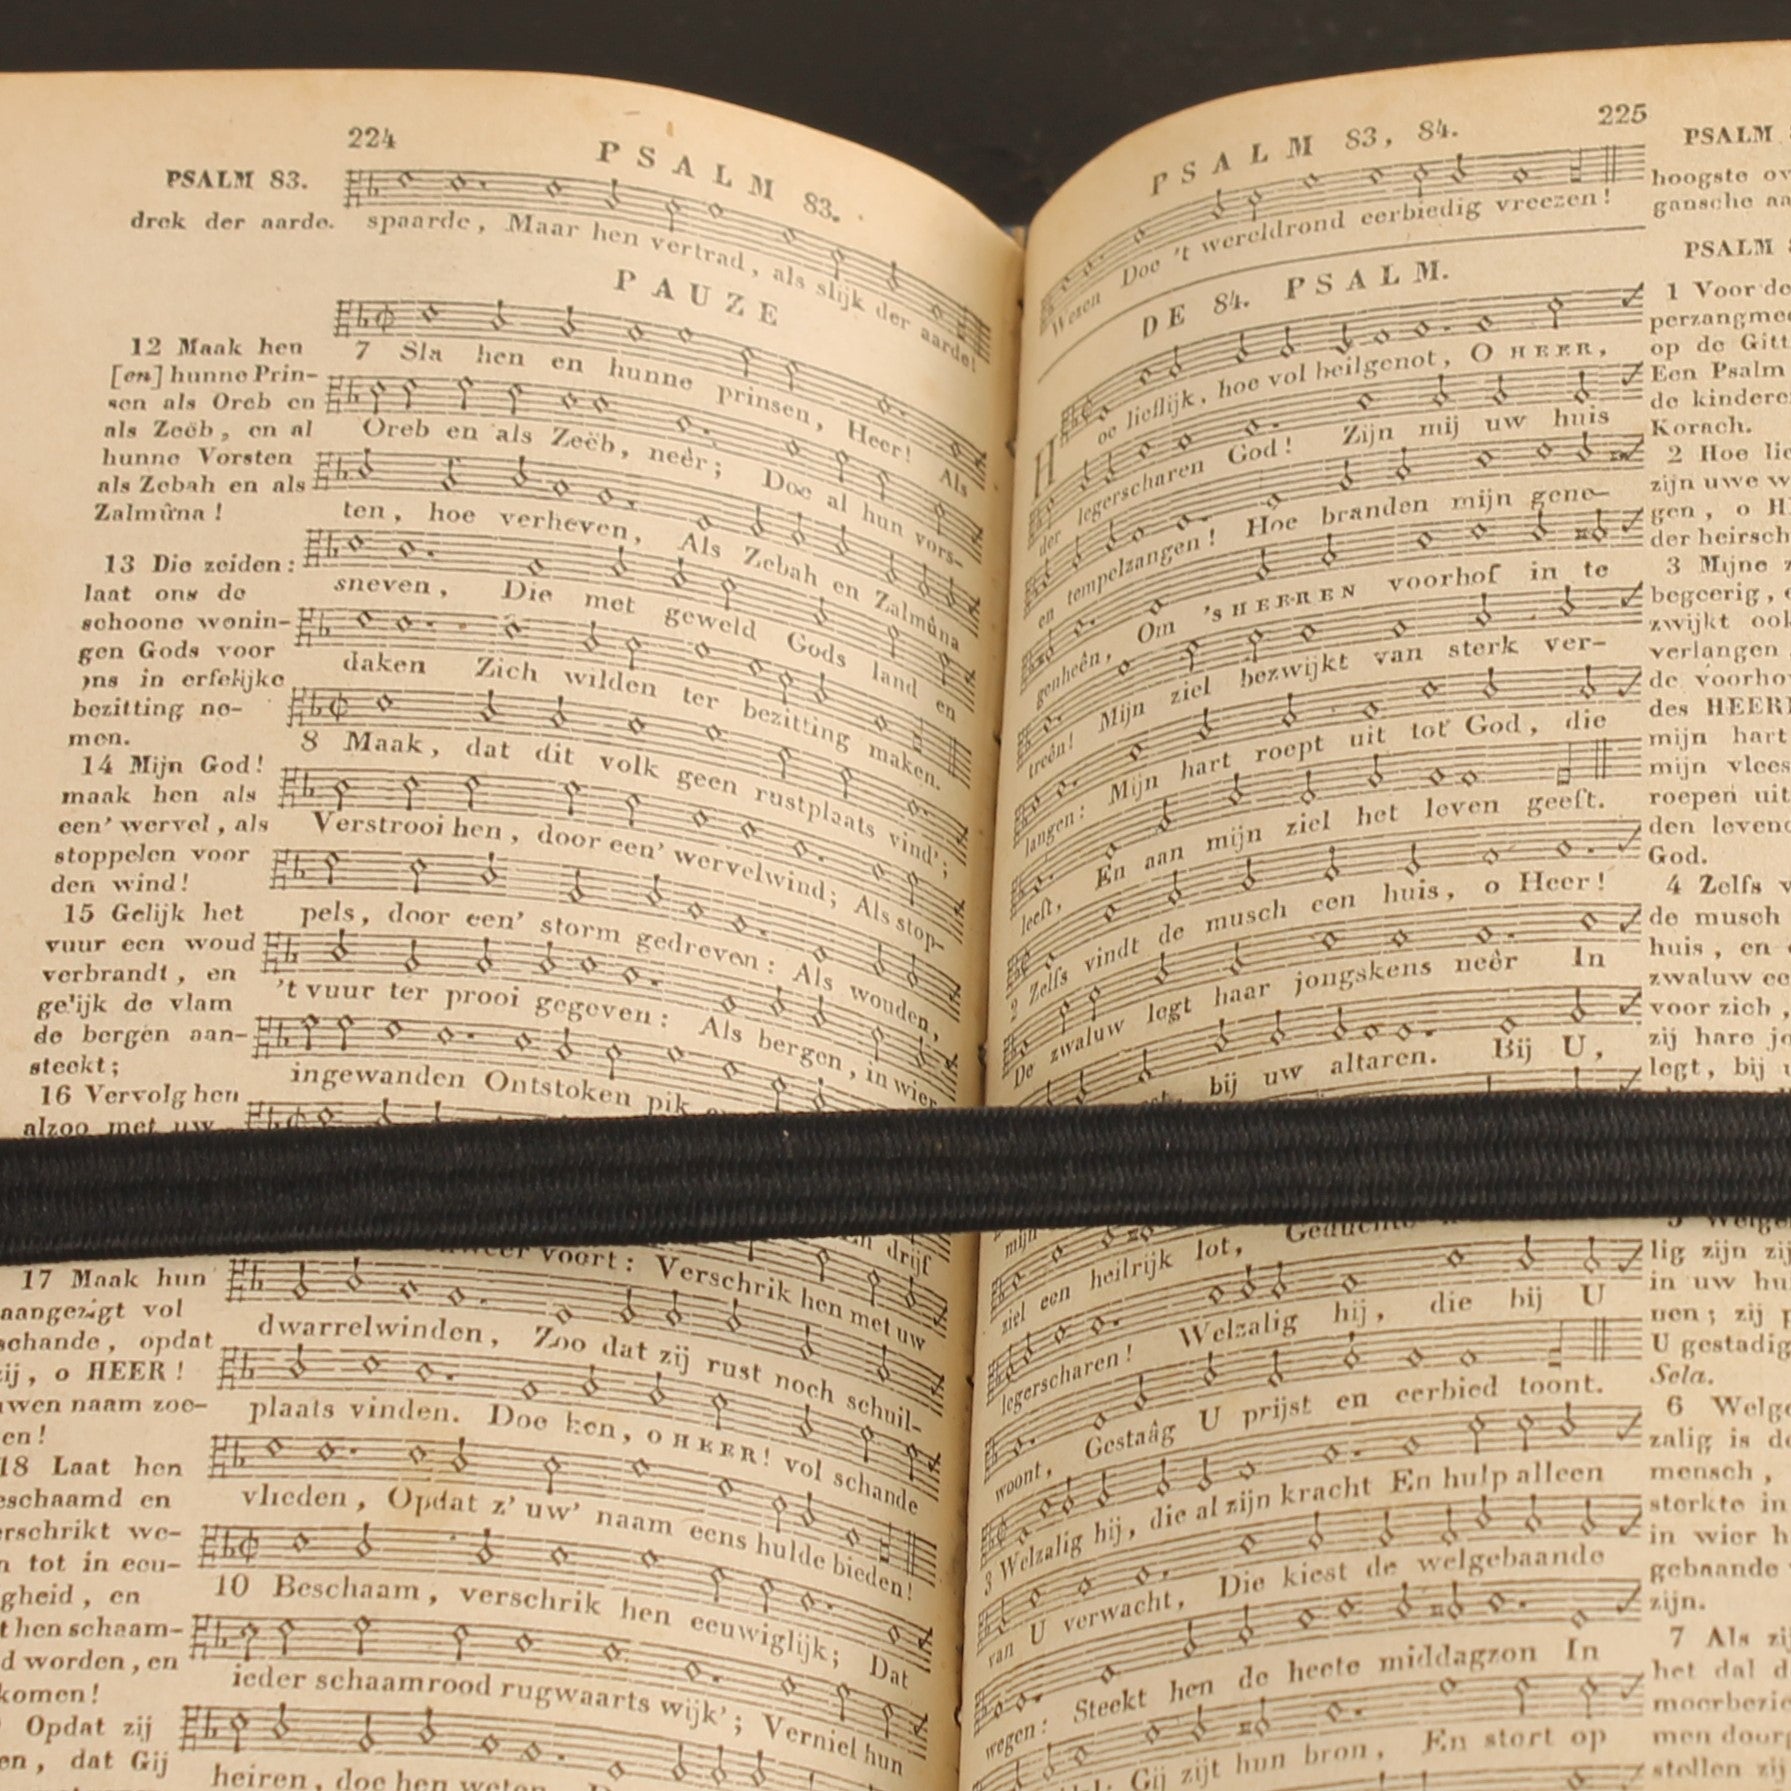 224
PSALM 83.
PSALM 83.
drek der aarde.
spaarde, Maar hen vertrad, als slijk der aarde!
PAUZE
12 Maak hen
[en] hunne Prin-
sen als Oreb en
als Zeëb, en al
hunne Vorsten
als Zebah en als
Zalmûna!
13 Die zeiden:
laat ons de
schoone wonin-
gen Gods voor
ons in erfelijke
bezitting ne-
men.
14 Mijn God!
maak hen als
een' wervel, als
stoppelen voor
den wind!
15 Gelijk het
vuur een woud
verbrandt, en
gelijk de vlam
de bergen aan-
steekt;
16 Vervolg hen
alzoo met uw
17 Maak hun
aangezigt vol
schande, opdat
zij, o HEER!
uwen naam zoe-
en!
18 Laat hen
eschaamd en
erschrikt we-
n tot in eeu-
gheid, en
t hen schaam-
d worden, en
komen!
Opdat zij
en, dat Gij
7 Sla hen en hunne prinsen, Heer! Als
Oreb en als Zeëb, neêr; Doe al hun vors-
ten, hoe verheven, Als Zebah en Zalmûna
sneven, Die met geweld Gods land en
daken Zich wilden ter bezitting maken.
8 Maak, dat dit volk geen rustplaats vind';
Verstrooi hen, door een' wervelwind; Als stop-
pels, door een' storm gedreven: Als wouden,
't vuur ter prooi gegeven: Als bergen, in wier
ingewanden Ontstoken pik
En drijf
voort: Verschrik hen met uw
dwarrelwinden, Zoo dat zij rust noch schuil-
plaats vinden. Doe hen, O HEER! vol schande
vlieden, Opdat z' uw' naam eens hulde bieden!
10 Beschaam, verschrik hen eeuwiglijk; Dat
ieder schaamrood rugwaarts wijk'; Verniel hun
heiren, doe hen weten
225
PSALM 83, 84.
Wezen Doe 't wereldrond eerbiedig vreezen!
DE 84. PSALM.
Hoe lieflijk, hoe vol heilgenot, O HEER,
der legerscharen God! Zijn mij uw huis
en tempelzangen! Hoe branden mijn gene-
genheên, Om 's HEEREN voorhof in te
treên! Mijn ziel bezwijkt van sterk ver-
langen: Mijn hart roept uit tot God, die
leeft, En aan mijn ziel het leven geeft.
2 Zelfs vindt de musch een huis, o Heer!
De zwaluw legt haar jongskens neêr In
bij uw altaren. Bij U,
mijn Geduchte
ziel een heilrijk lot,
legerscharen! Welzalig hij, die bij U
woont, Gestaâg U prijst en eerbied toont.
3 Welzalig hij, die al zijn kracht En hulp alleen
van U verwacht, Die kiest de welgebaande
wegen: Steekt hen de heete middagzon In
Gij zijt hun bron, En stort op
PSALM
hoogste ov
gansche aa
PSALM
1 Voor de
perzangmee
op de Gitt
Een Psalm
de kindere
Korach.
2 Hoe lie
zijn uwe w
gen, o H
der heirsch
3 Mijne z
begeerig, e
zwijkt ook
verlangen
de voorho
des HEERE
mijn hart
mijn vlees
roepen uit
den levend
God.
4 Zelfs v
de musch
huis, en
zwaluw ee
voor zich,
zij hare jo
legt, bij
5 Welge
lig zijn zij
in uw hu
nen; zij p
U gestadig
Sela.
6 Welge
zalig is de
mensch,
sterkte in
in wier h
gebaande
zijn.
7 Als zij
het dal d
moerbezie
men doorg
stellen zij